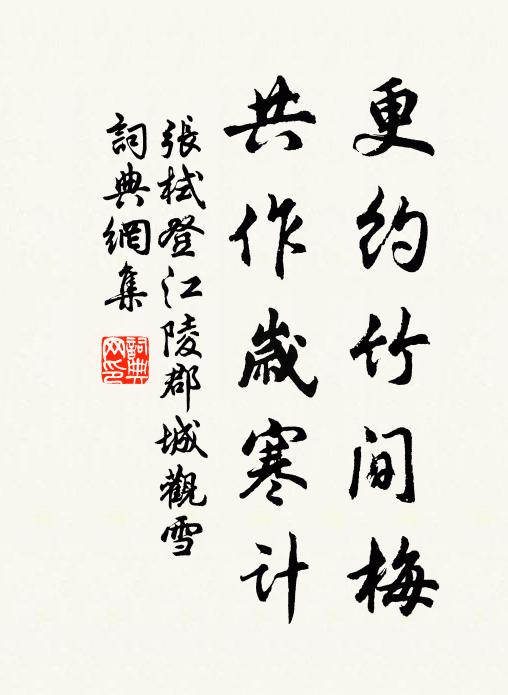 更约竹间梅
共作歲寒计
張栻登江陵郡城觀雪
詞典網集
詞典网印